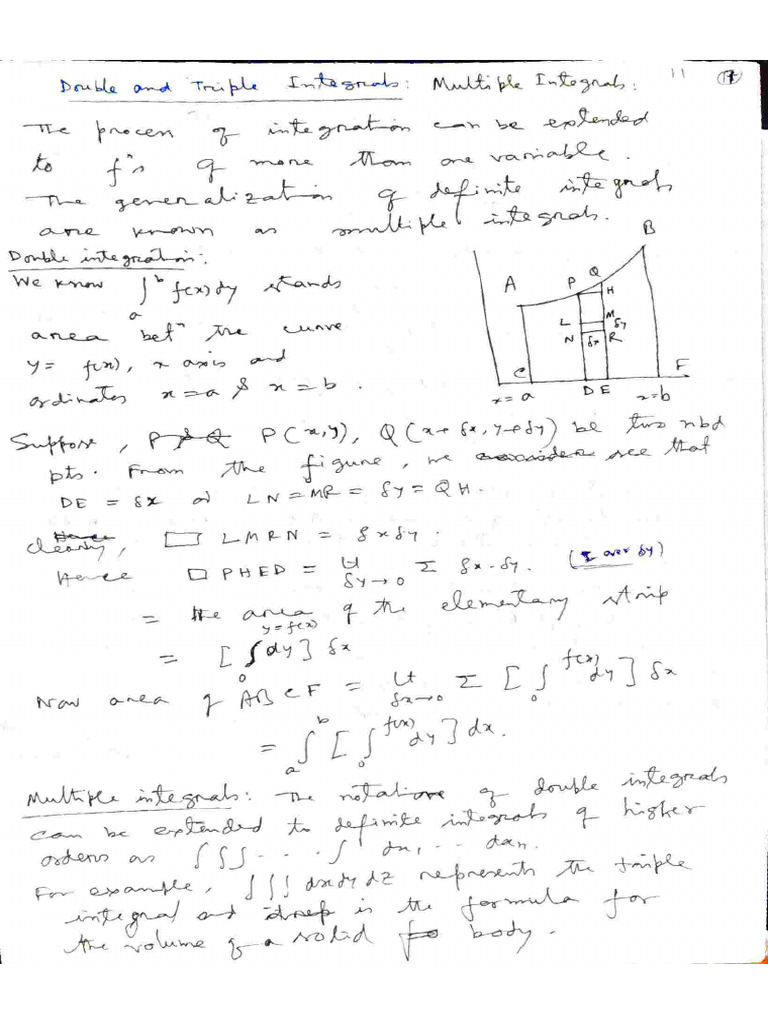 Double and Triple Integrals: Multiple Integrals: 11 17
The process of integration can be extended
to fⁿs of more than one variable.
The generalization of definite integrals
are known as multiple integrals.
Double integration:
We know ∫ₐᵇ f(x) dy stands
area betⁿ the curve
y = f(x), x axis and
ordinates x = a & x = b.
A P Q B
H
L M δy
N δx R
C D E F
x = a x = b
Suppose, P & Q P(x,y), Q(x+δx, y+δy) be two nbd
pts. From the figure, we consider see that
DE = δx & LN = MR = δy = QH.
Hence
Clearly, ▭ LMRN = δx δy.
Hence ▭ PHED = Lt_{δy→0} Σ δx·δy. (Σ over δy)
= the area of the elementary strip
= [∫₀^{y=f(x)} dy] δx
Now area of ABCF = Lt_{δx→0} Σ [∫₀^{f(x)} dy] δx
= ∫ₐᵇ [∫₀^{f(x)} dy] dx.
Multiple integrals: The notation of double integrals
can be extended to definite integrals of higher
orders as ∫∫∫ ... ∫ dx₁ ... dxₙ.
For example, ∫∫∫ dx dy dz represents the triple
integral and is the formula for
the volume of a solid body.